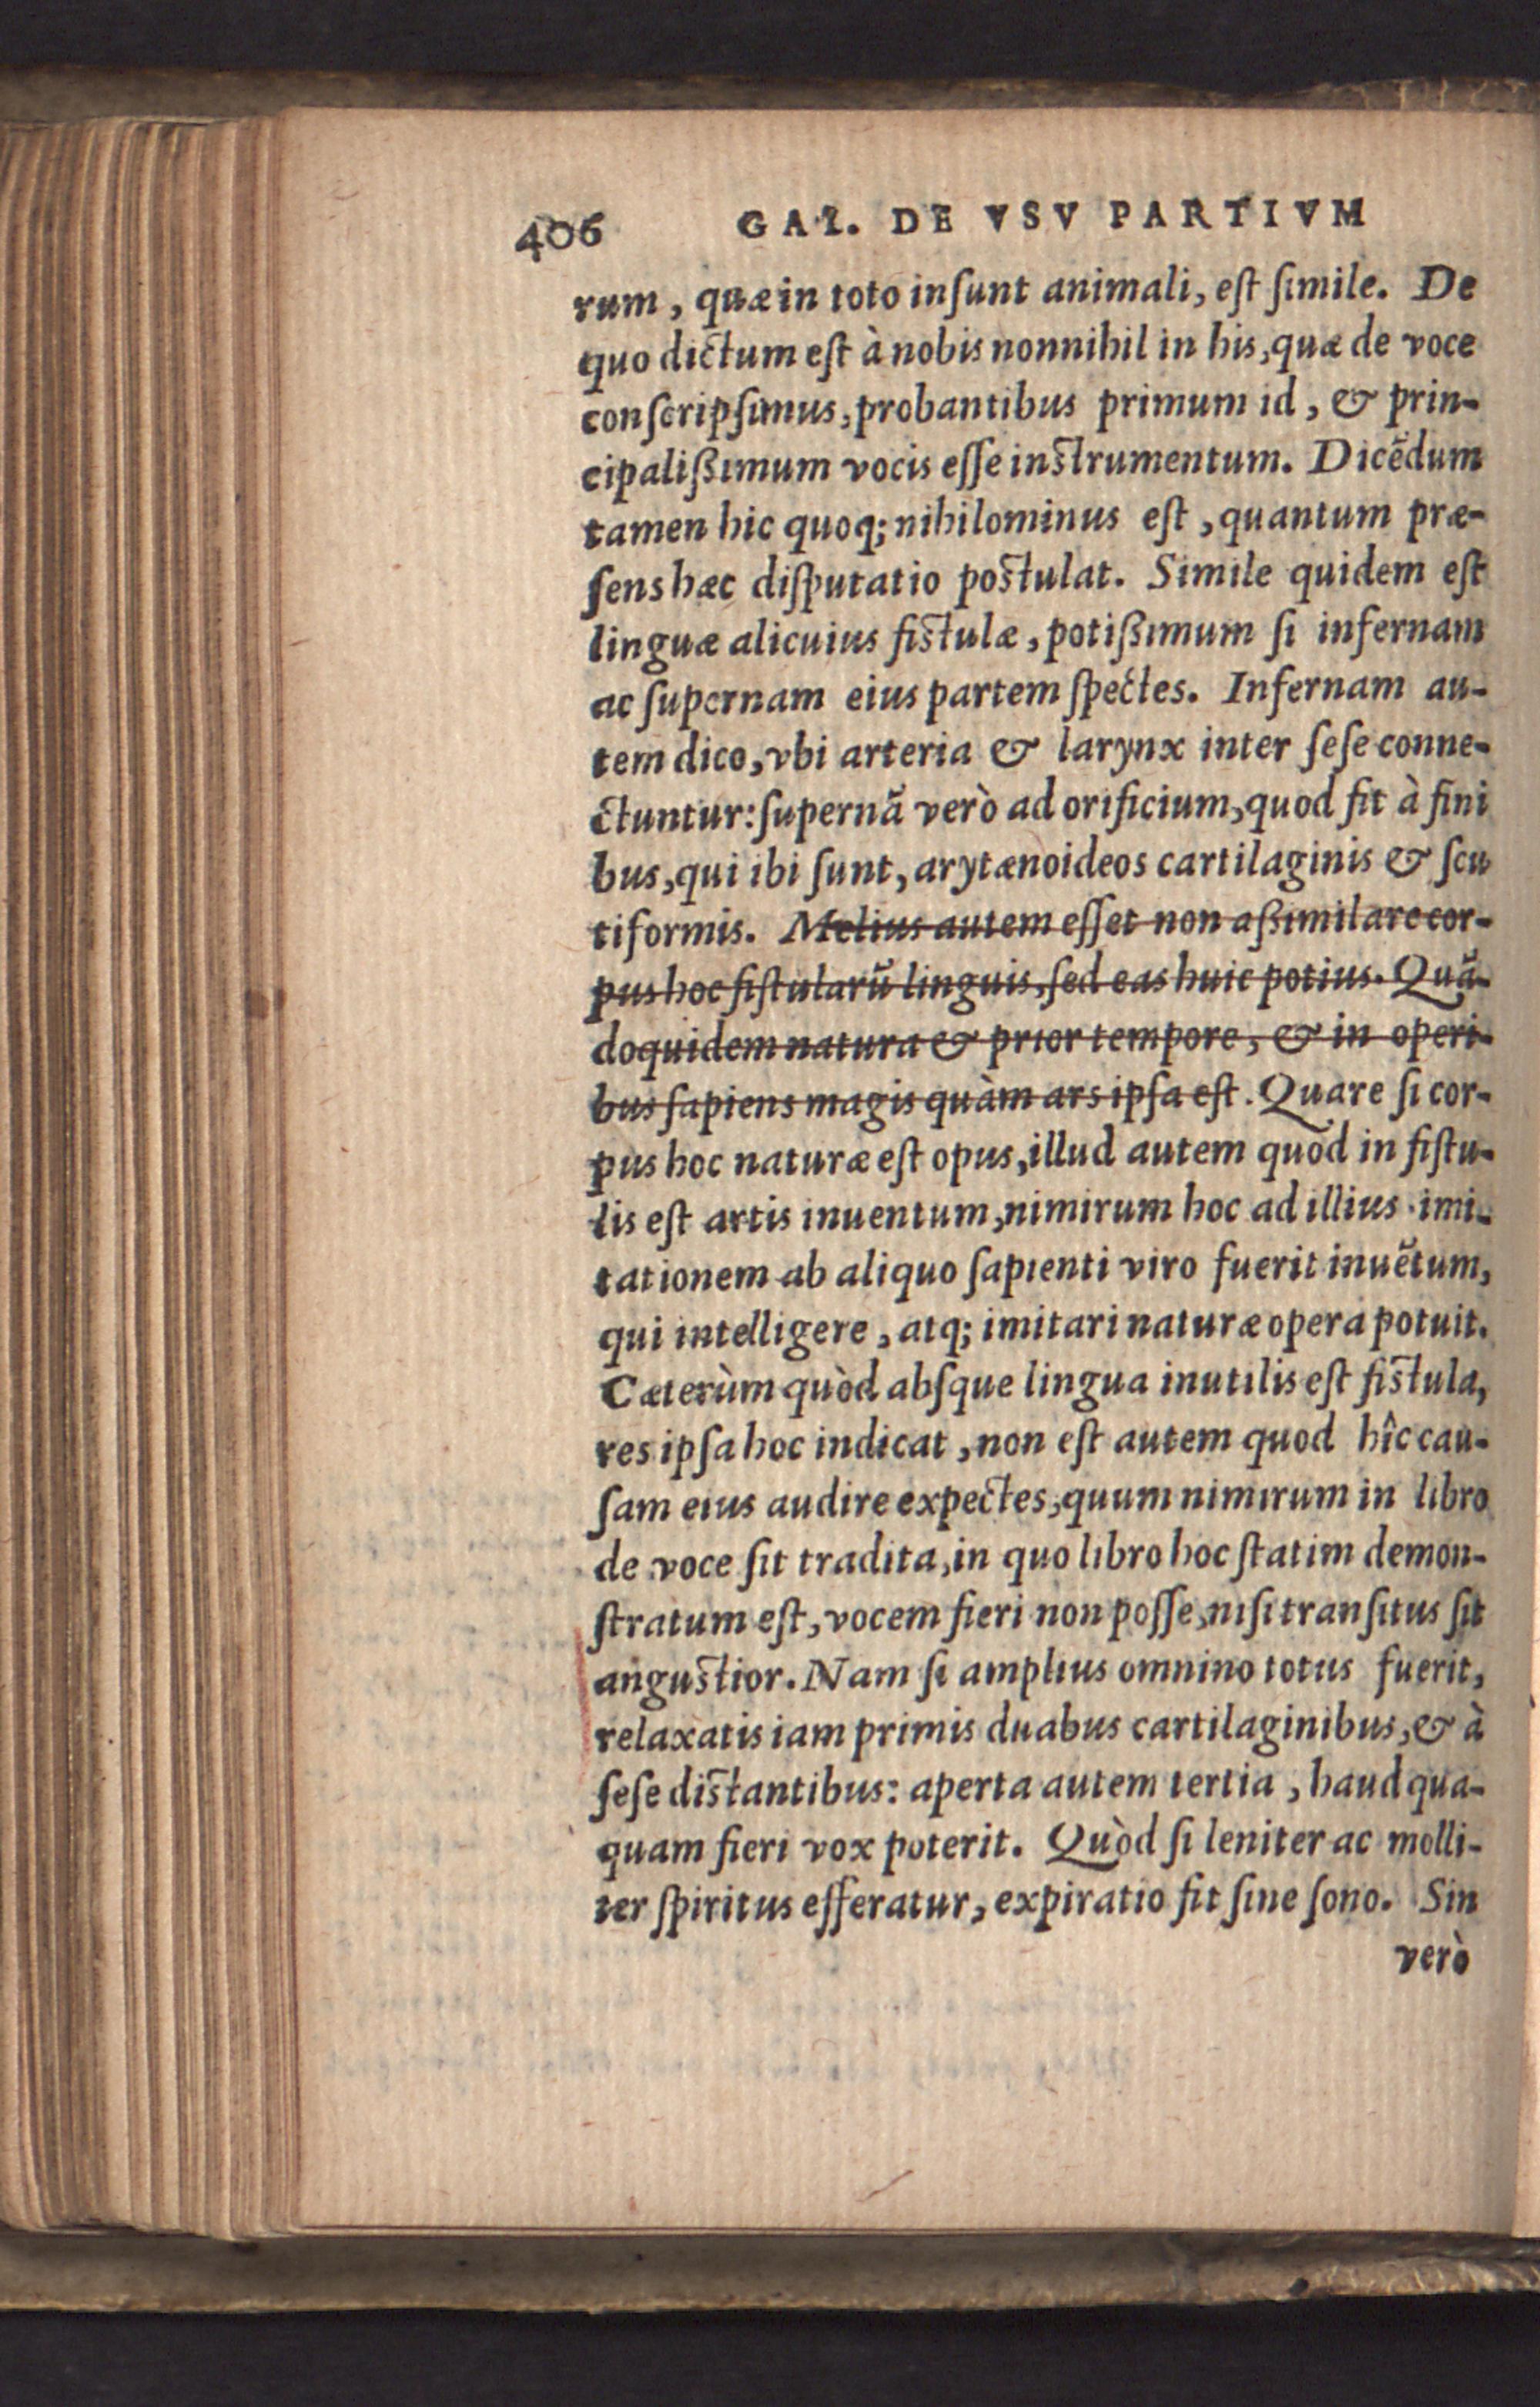 406 GAL. DE VSV PARTIVM
rum, quæ in toto inſunt animali, eſt ſimile. De
quo dictum eſt à nobis nonnihil in his, quæ de voce
conſcripſimus, probantibus primum id, & prin-
cipalißimum vocis eſſe inſtrumentum. Dicẽdum
tamen hic quoq; nihilominus eſt, quantum præ-
ſens hæc diſputatio poſtulat. Simile quidem eſt
linguæ alicuius fiſtulæ, potißimum ſi infernam
ac ſupernam eius partem ſpectes. Infernam au-
tem dico, vbi arteria & larynx inter ſeſe conne-
ctuntur: ſupernã verò ad orificium, quod fit à fini
bus, qui ibi ſunt, arytænoideos cartilaginis & ſcu
tiformis. Melius autem eſſet non aßimilare cor-
pus hoc fiſtularũ linguis, ſed eas huic potius. Quã-
doquidem natura & prior tempore, & in operi-
bus ſapiens magis quàm ars ipſa eſt. Quare ſi cor-
pus hoc naturæ eſt opus, illud autem quod in fiſtu-
lis eſt artis inuentum, nimirum hoc ad illius imi-
tationem ab aliquo ſapienti viro fuerit inuẽtum,
qui intelligere, atq; imitari naturæ opera potuit.
Cæterùm quòd abſque lingua inutilis eſt fiſtula,
res ipſa hoc indicat, non eſt autem quod hîc cau-
ſam eius audire expectes, quum nimirum in libro
de voce ſit tradita, in quo libro hoc ſtatim demon-
ſtratum eſt, vocem fieri non poſſe, niſi tranſitus ſit
anguſtior. Nam ſi amplius omnino totus fuerit,
relaxatis iam primis duabus cartilaginibus, & à
ſeſe diſtantibus: aperta autem tertia, haud qua-
quam fieri vox poterit. Quòd ſi leniter ac molli-
ter ſpiritus efferatur, expiratio fit ſine ſono. Sin
verò